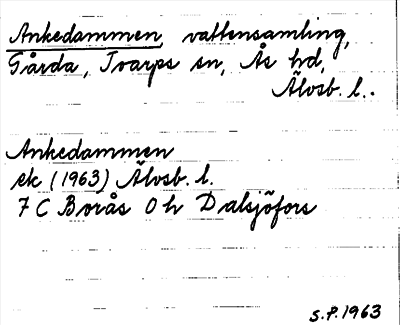 Ankedammen, vattensamling,
Gårda, Tvarps sn, Ås hd,
Älvsb. l..
Ankedammen
ek (1963) Älvsb. l.
7 C Borås 0 h Dalsjöfors
S.P. 1963